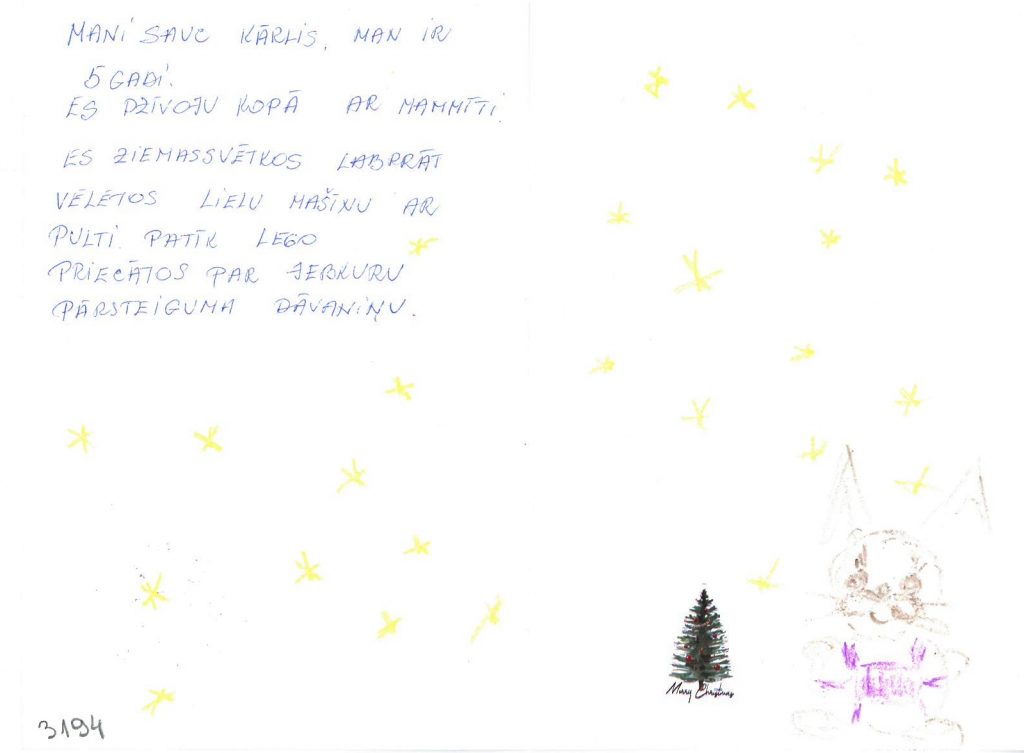 MANI SAUC KĀRLIS, MAN IR
5 GADI.
ES DZĪVOJU KOPĀ AR MAMMĪTI.
ES ZIEMASSVĒTKOS LABPRĀT
VĒLĒTOS LIELU MAŠĪNU AR
PULTI. PATĪK LEGO
PRIECĀTOS PAR JEBKURU
PĀRSTEIGUMA DĀVANIŅU.
Merry Christmas
3194